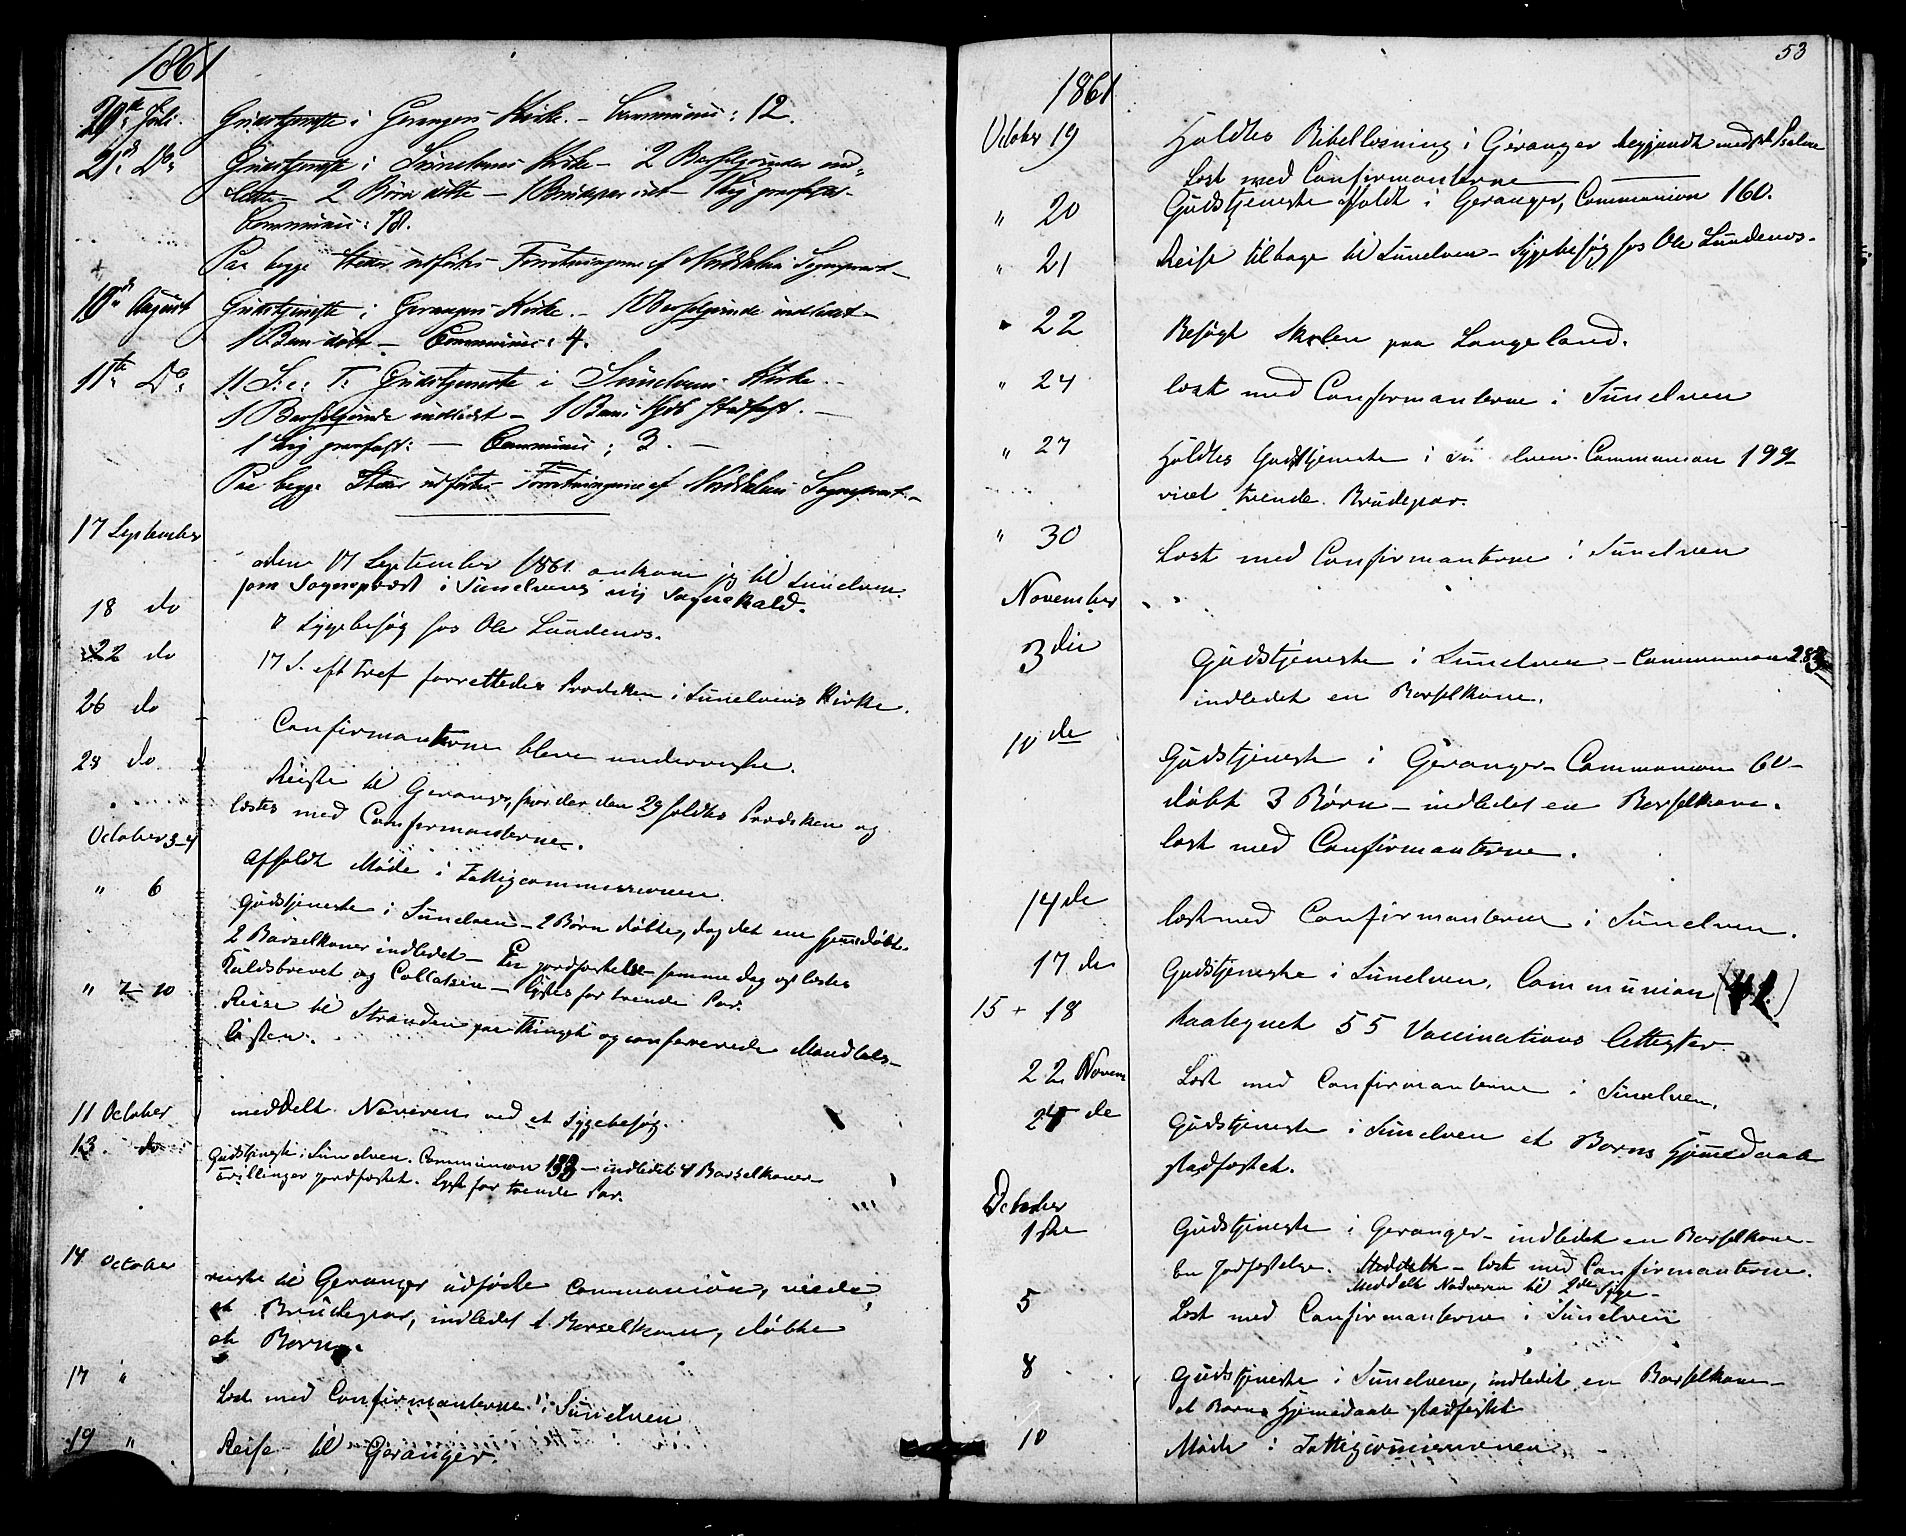 1861
20de Juli. Gudstjeneste i Gerangers Kirke. – Communic: 12.
21de Do Gudstjeneste i Sunelvens Kirke – 2 Barselqvinder ind-
ledte – 2 Børn døbte – 1 Brudepar viet – 1 Lig jordfæst.
Communic: 18.
Paa begge Steder udførtes Forretningerne af Norddalens Sognepræst –
10de August Gudstjeneste i Gerangers Kirke. – 1 Barselqvinde indledet –
1 Barn døbt – Communic: 4.
11te Do 11 S. e: T: Gudstjeneste i Sunelvens Kirke –
1 Barselqvinde indledet – 1 Barns Hjd. stadfæst. –
1 Lig jordfæst: – Communic: 3. –
Paa begge Steder udførtes Forretningerne af Norddalens Sognepræst. –
17 September den 17 September 1861 ankom jeg til Sunelven
som Sognepræst i Sunelvens nye Sognekald.
18 do Sygebesøg hos Ole Lundenes.
22 do 17 S. eft Tref forrettedes Prædiken i Sunelvens Kirke.
26 do Confirmanterne bleve underviste.
28 do Reiste til Geranger, hvor der den 29 holdtes Prædiken og
læstes med Confirmanterne.
October 3–4 Afholdt Møde i Fattigcommissionen.
" 6 Gudstjeneste i Sunelven – 2 Børn døbte, dog det ene hjemdøbt.
2 Barselkoner indledet – En jordfæstelse – samme Dag oplæstes
Kaldsbrevet og Collatsen – lystes for trende Par.
" 7–10 Reise til Stranden paa Thinget og confererede Mandtals-
listen.
11 October meddelt Naveren ved et Sygebesøg.
13. do Gudstjeneste i Sunelven. Communion 133 – indledet 4 Barselkoner
Trillinger jordfæstet. Lyst for trende Par.
14 October reiste til Geranger udførte Communion, viede
et Brudepar, indledet 1 Barselkone, døbte
et Barn.
17 " Læst med Confirmanterne i Sunelven
19 " Reise til Geranger.
53
1861
October 19 Holdtes Bibellæsning i Geranger begyndt med Psalme
Læst med Confirmanterne
" 20 Gudstjeneste afholdt i Geranger, Communion 160.
" 21 Reise tilbage til Sunelven – Sygebesøg hos Ole Lundenes.
" 22 Besøgt Skolen paa Langeland.
" 24 læst med Confirmanterne i Sunelven
" 27 Holdtes Gudstjeneste i Sunelven. Communion 199–
viet trende Brudepar.
" 30 Læst med Confirmanterne i Sunelven
November
3 die Gudstjeneste i Sunelven – Communion 283
indledet en Barselkone.
10 de Gudstjeneste i Geranger – Communion 60 –
døbt 3 Børn – indledet en Barselkone.
læst med Confirmanterne.
14 de læst med Confirmanterne i Sunelven.
17 de Gudstjeneste i Sunelven. Communion
15 + 18 Paategnet 55 Vaccinations Attester
22 Novem Læst med Confirmanterne i Sunelven.
24 de Gudstjeneste i Sunelven et Barns Hjemedaab
stadfæstet.
December
1ste Gudstjeneste i Geranger – indledet en Barselkone –
En Jordfæstelse. – læst med Confirmanterne.
Meddelt Nadveren til 2de Syge –
5 Læst med Confirmanterne i Sunelven
8 Gudstjeneste i Sunelven, indledet en Barselkone –
et Barns Hjemedaab stadfæstet
10 Møde i Fattigcommissionen